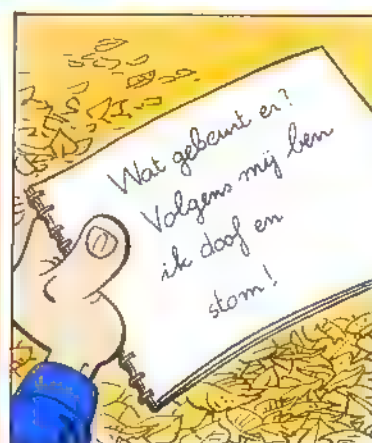 Wat gebeurt er?
Volgens mij ben
ik doof en
stom!